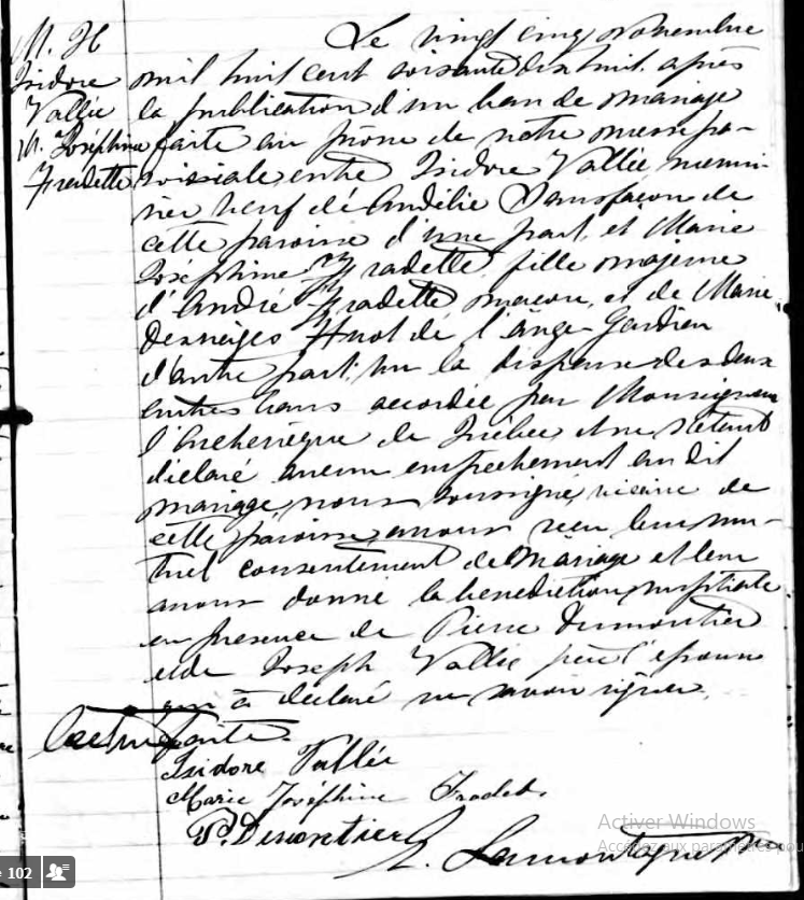 M. H
Isidore
Vallée
M. Joséphine
Fradette
Le vingt cinq novembre
mil huit cent soixante dix huit, après
la publication d'un ban de mariage
faite au prône de notre messe pa-
roissiale, entre Isidore Vallée, menui-
sier veuf de Andélie Sansfaçon de
cette paroisse d'une part, et Marie
Joséphine Fradette, fille majeure
d'André Fradette maçon, et de Marie
Desneiges Huot de l'Ange-Gardien
d'autre part; vu la dispense des deux
autres bans accordée par Monseigneur
l'Archevêque de Québec, et ne s'étant
déclaré aucun empêchement au dit
mariage, nous soussigné, vicaire de
cette paroisse, avons reçu leur mu-
tuel consentement de mariage et leur
avons donné la bénédiction nuptiale
en présence de Pierre Dumontier
et de Joseph Vallée père l'époux
qui a déclaré ne savoir signer.
Lecture faite.
Isidore Vallée
Marie Joséphine Fradet
P. Dumontier
Lamontagne Ptre
Activer Windows
Accédez aux paramètres pou
102